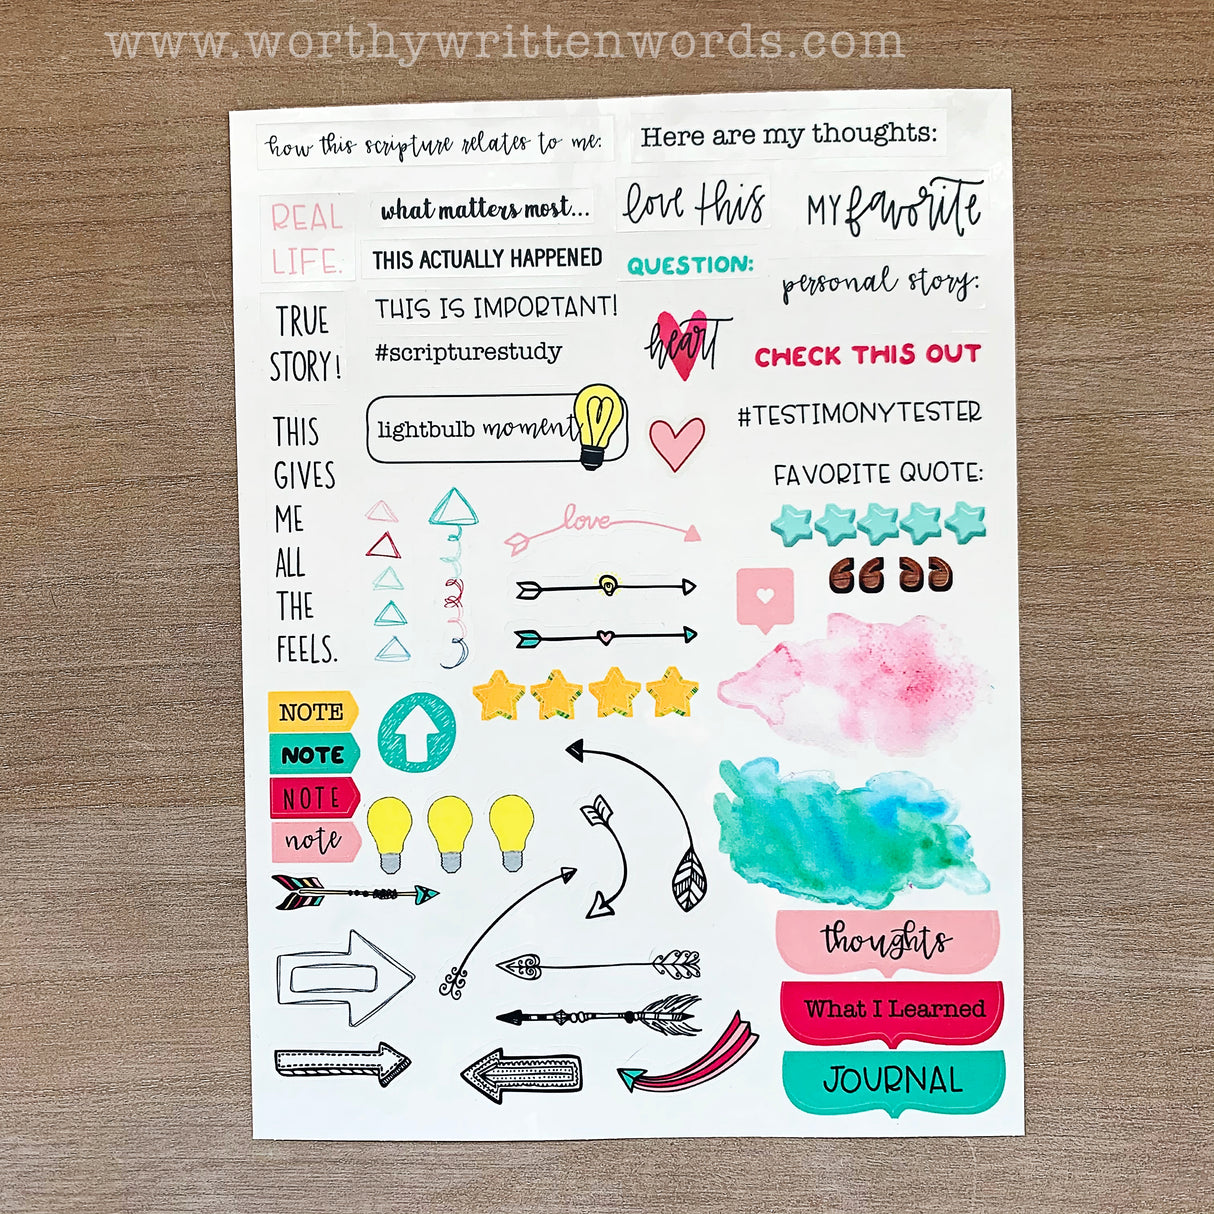 www.worthywrittenwords.com
how this scripture relates to me:
Here are my thoughts:
REAL
LIFE.
what matters most...
love this
MY favorite
THIS ACTUALLY HAPPENED
QUESTION:
personal story:
TRUE
STORY!
THIS IS IMPORTANT!
#scripturestudy
heart
CHECK THIS OUT
lightbulb moment
#TESTIMONYTESTER
FAVORITE QUOTE:
THIS
GIVES
ME
ALL
THE
FEELS.
love
“ ”
NOTE
NOTE
NOTE
note
thoughts
What I Learned
JOURNAL